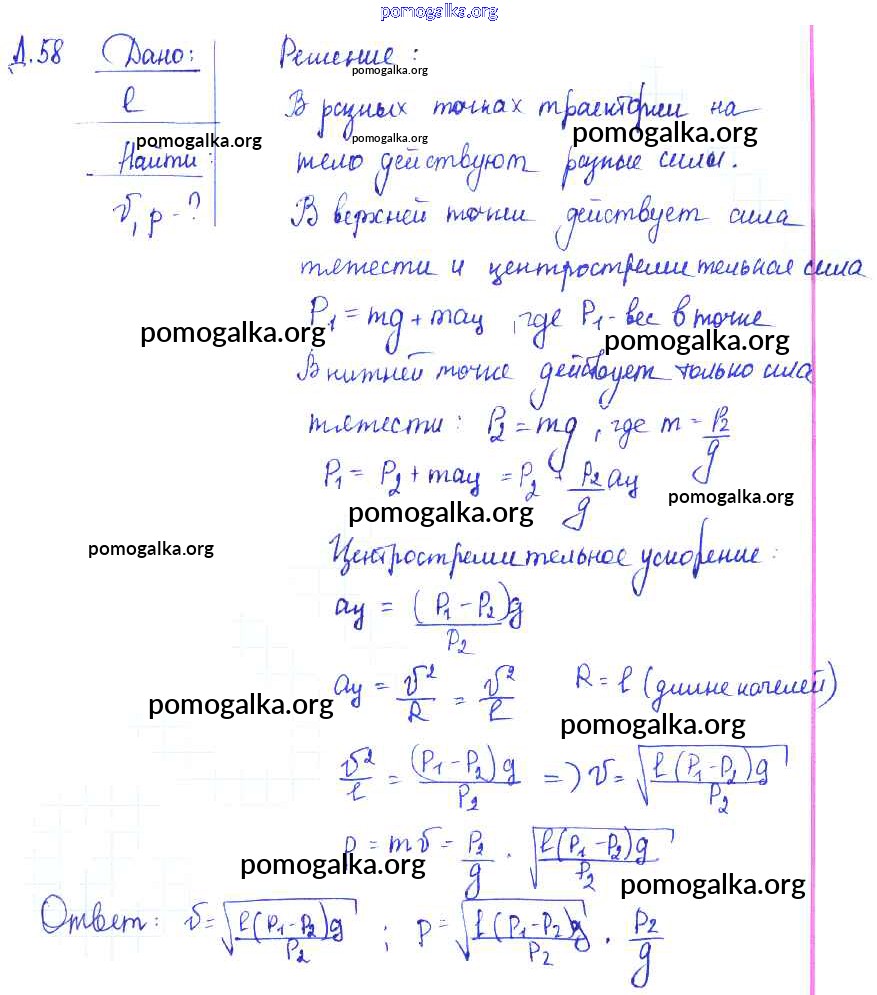 pomogalka.org
Д.58 Дано: Решение:
pomogalka.org
l В разных точках траектории на
pomogalka.org pomogalka.org pomogalka.org
Найти: тело действуют разные силы.
v, p - ? В верхней точки действует сила
тяжести и центростремительная сила
P₁ = mg + maц, где P₁ - вес в точке
pomogalka.org pomogalka.org
В нижней точке действует только сила
тяжести: P₂ = mg, где m = P₂/g
P₁ = P₂ + maц = P₂ + P₂/g aц
pomogalka.org
pomogalka.org
pomogalka.org
Центростремительное ускорение:
aц = (P₁ - P₂)g/P₂
aц = v²/R = v²/l R = l (длине качелей)
pomogalka.org pomogalka.org
v²/l = (P₁ - P₂)g/P₂ => v = √(l(P₁ - P₂)g/P₂)
p = mv = P₂/g · √(l(P₁ - P₂)g/P₂)
pomogalka.org pomogalka.org
Ответ: v = √(l(P₁ - P₂)g/P₂) ; p = √(l(P₁ - P₂)g/P₂) · P₂/g